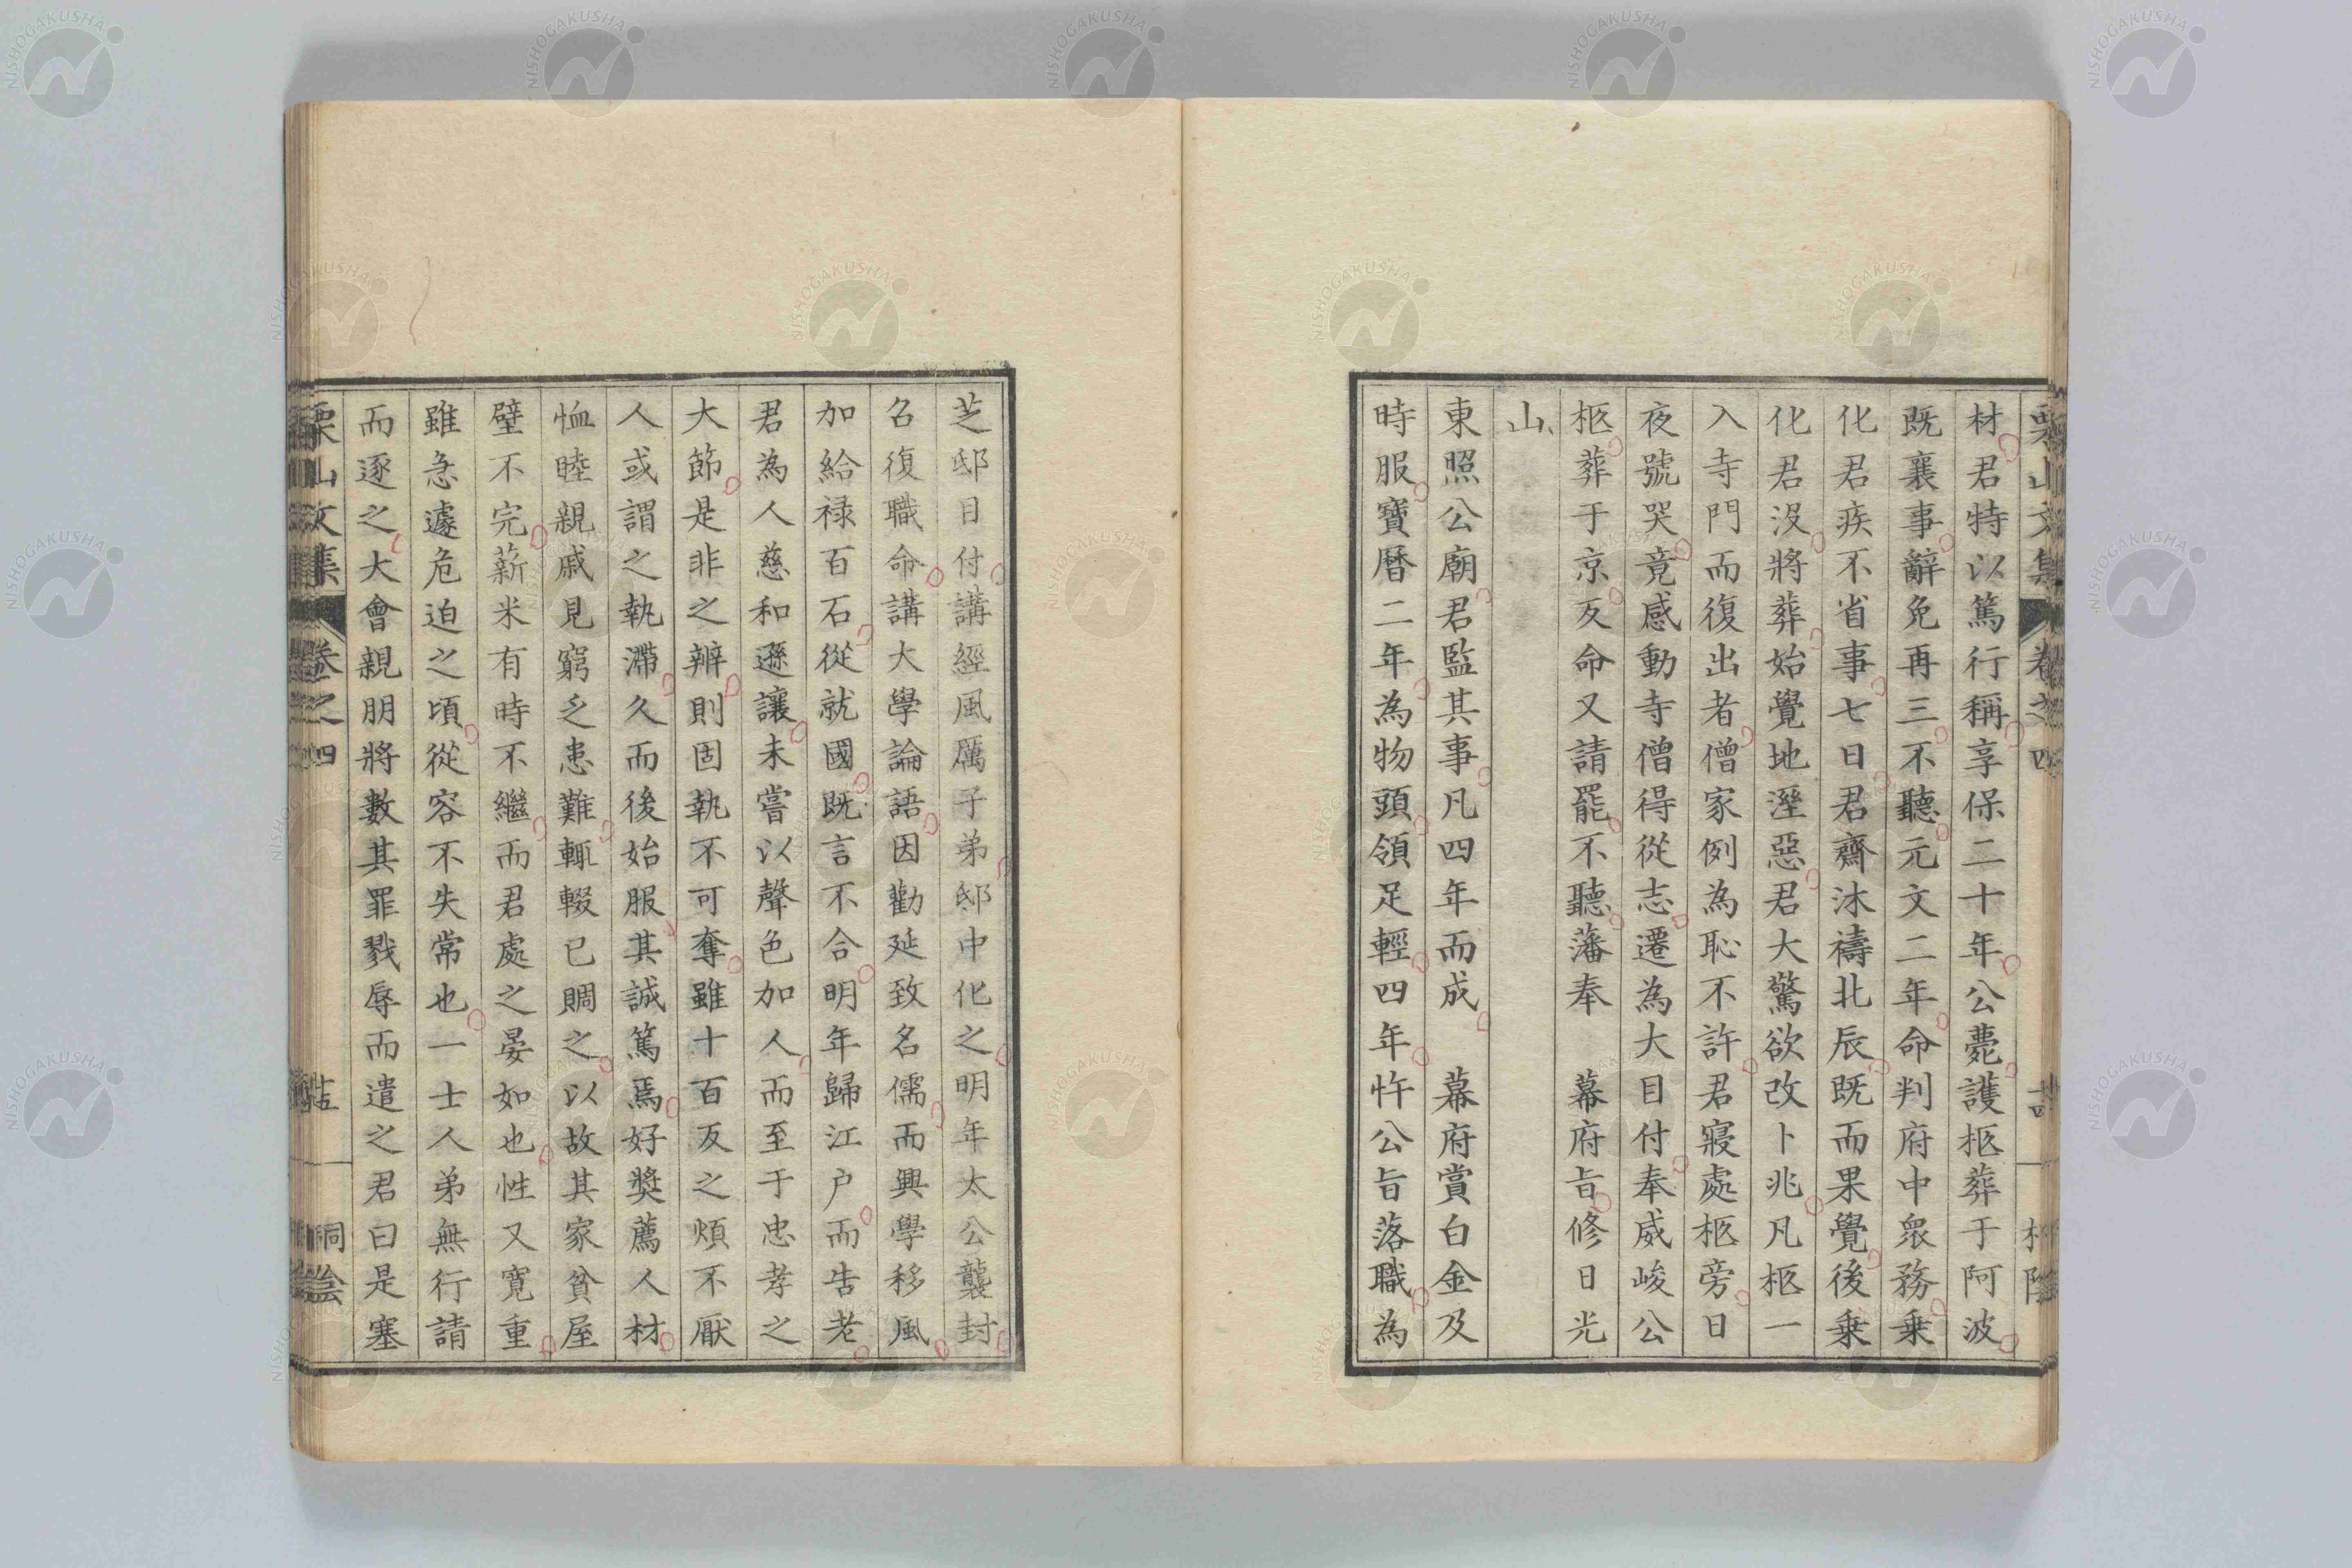 栗山文集 卷之四
材君特以篤行稱享保二十年公薨護柩葬于阿波
既襄事辭免再三不聽元文二年命判府中衆務乗
化君疾不省事七日君齋沐禱北辰既而果覺後乗
化君沒將葬始覺地溼惡君大驚欲改卜兆凡柩一
入寺門而復出者僧家例為恥不許君寢處柩旁日
夜號哭竟感動寺僧得從志遷為大目付奉威峻公
柩葬于京反命又請罷不聽藩奉 幕府旨修日光
山
東照公廟君監其事凡四年而成 幕府賞白金及
時服寶曆二年為物頭領足輕四年忤公旨落職為
芝邸目付講經風厲子弟邸中化之明年太公襲封
名復職命講大學論語因勸延致名儒而興學移風
加給祿百石從就國既言不合明年歸江户而告老
君為人慈和遜讓未嘗以聲色加人而至于忠孝之
大節是非之辨則固執不可奪雖十百反之煩不厭
人或謂之執滯久而後始服其誠篤焉好獎薦人材
恤睦親戚見窮乏患難輒輟已賙之以故其家貧屋
壁不完薪米有時不繼而君處之晏如也性又寬重
雖急遽危迫之頃從容不失常也一士人弟無行請
而逐之大會親朋將數其罪戮辱而遣之君曰是塞
栗山文集 卷之四